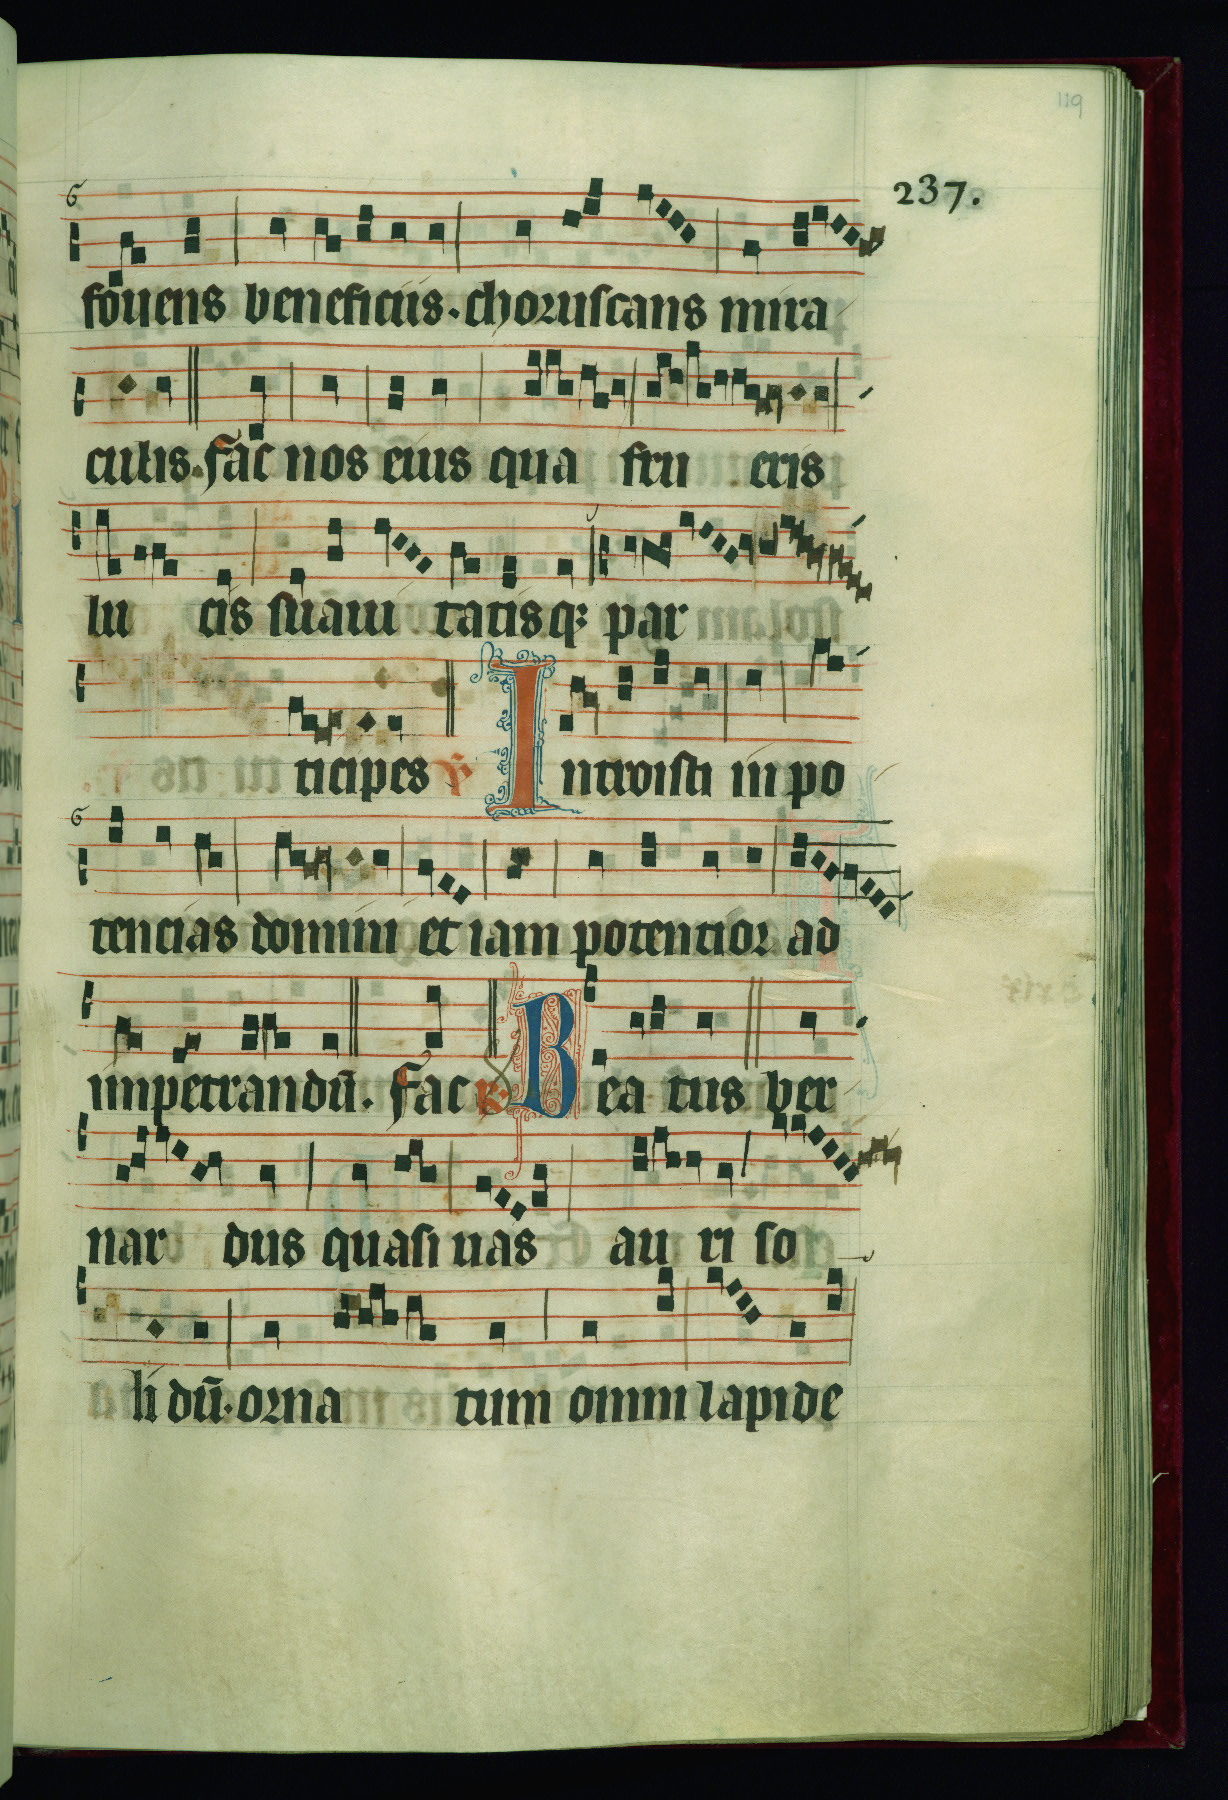 119
237.
fouens beneficiis. choruscans mira
culis. Fac nos eius qua fru eris
lu cis suaui tatisq; par
ticipes Introisti in po
tencias domini et iam potentior ad
impetrandū. Fac Bea tus ber
nar dus quasi uas au ri so
li dū. orna tum omni lapide